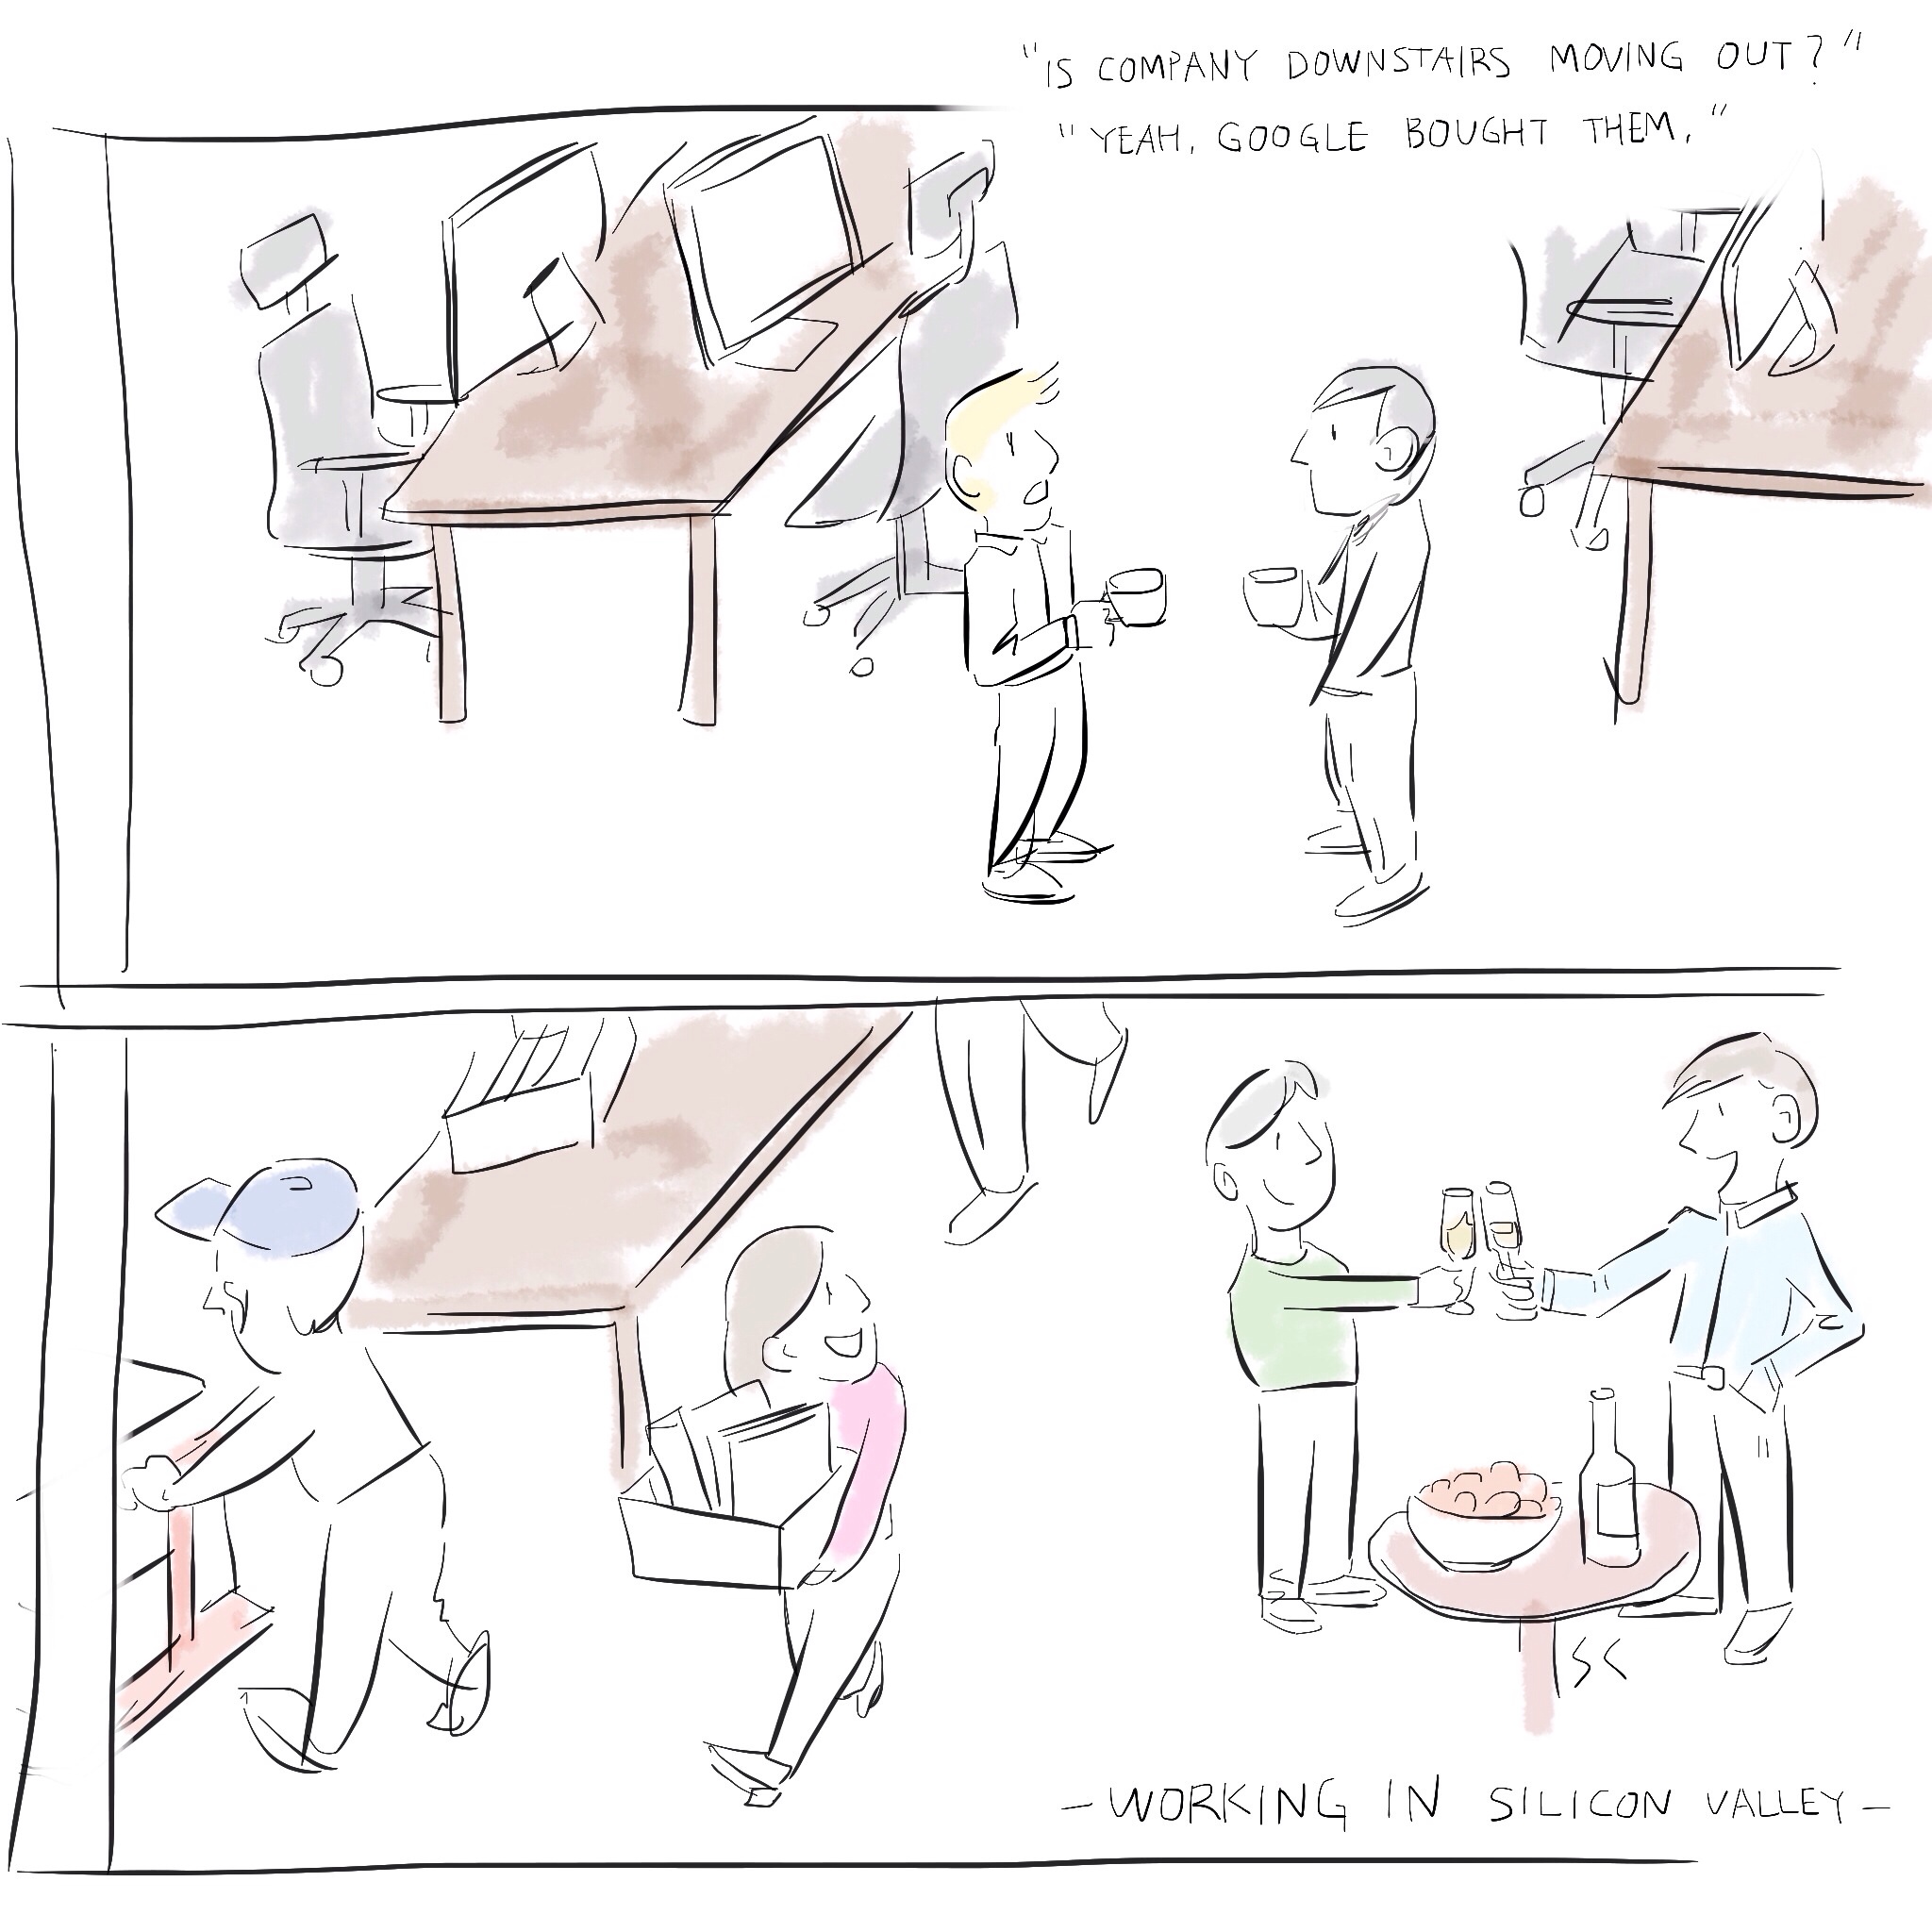 "IS COMPANY DOWNSTAIRS MOVING OUT?"
"YEAH, GOOGLE BOUGHT THEM."
SC
- WORKING IN SILICON VALLEY -